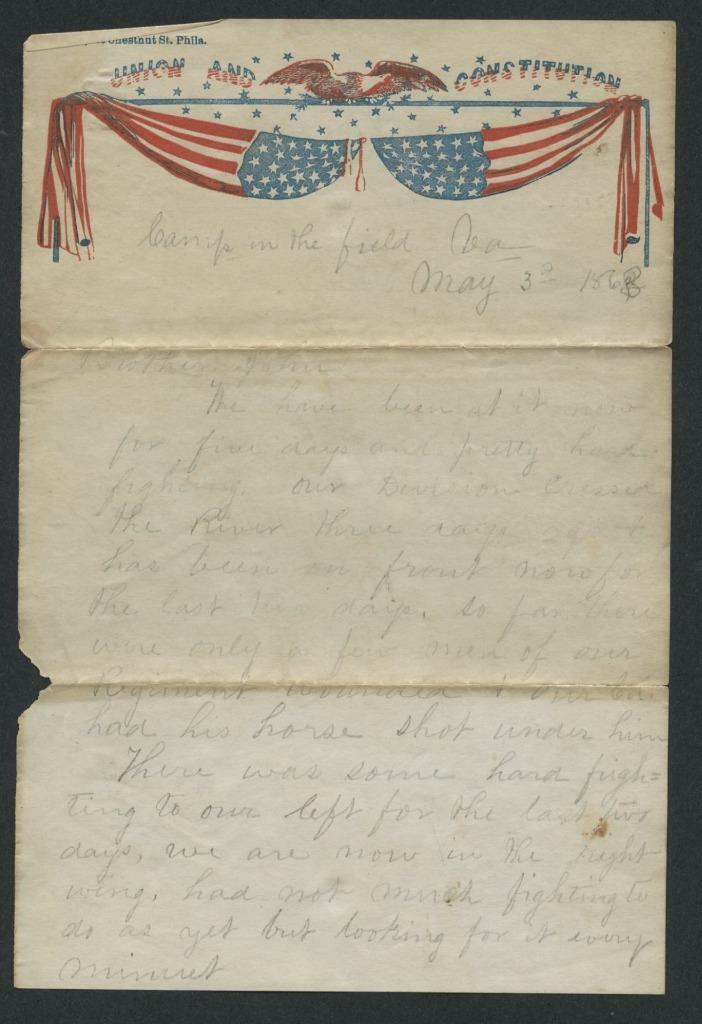 Chestnut St. Phila.
UNION AND CONSTITUTION
Camp in the field Va
May 3d 1863
Brother John
We have been at it now
for five days and pretty hard
fighting. our Division Crossed
the River three days ago &
has been on front now for
the last two days. so far there
were only a few men of our
Regiment wounded & our Col
had his horse shot under him
There was some hard figh=
ting to our left for the last two
days, we are now in the right
wing. had not much fighting to
do as yet but looking for it every
minuet